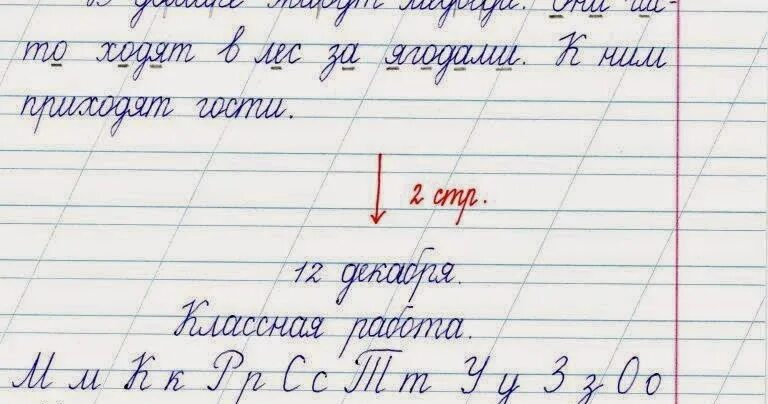 В домике живут медведи. Они ча-
то ходят в лес за ягодами. К ним
приходят гости.
2 стр.
12 декабря.
Классная работа.
М м К к Р р С с Т т У у З з О о